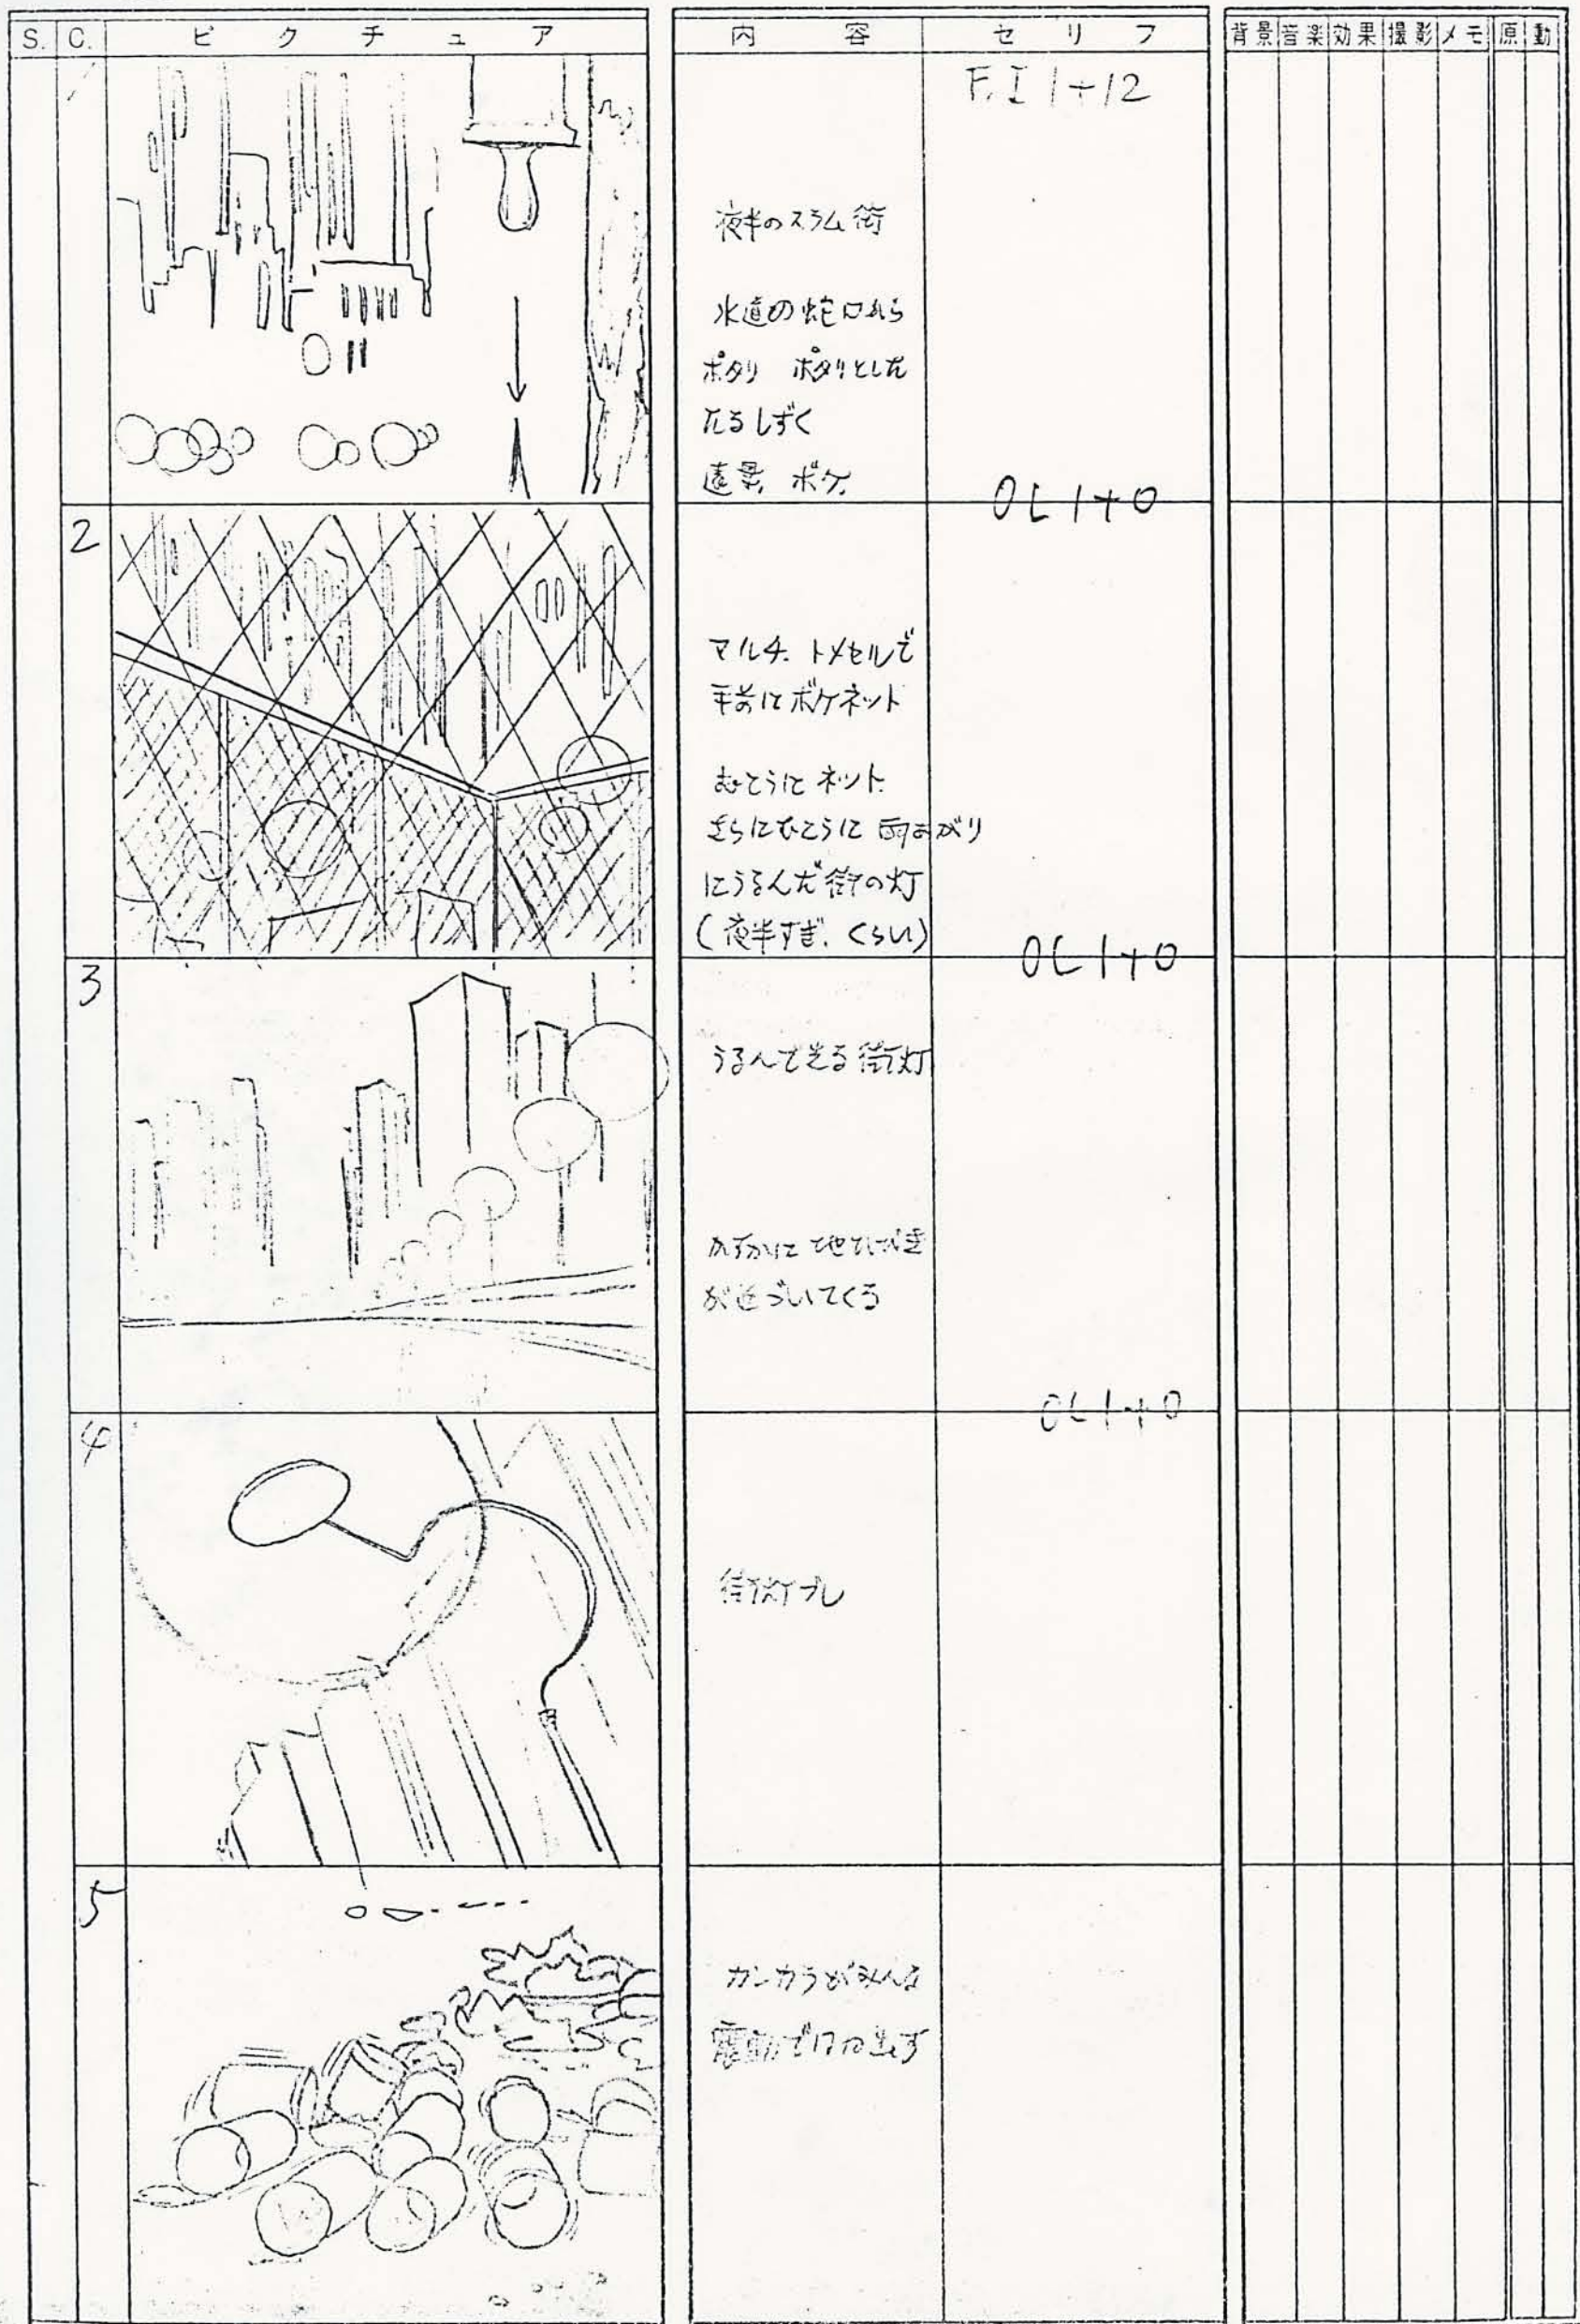 S. C. ピクチュア 内容 セリフ 背景 音楽 効果 撮影 メモ 原 動
F.I 1+12
夜半のスラム街
水道の蛇口から
ポタリ ポタリとした
たるしずく
遠景、ボケ.
OL 1+0
2
マルチ. トメセルで
手前にボケネット
むこうに ネット.
さらにむこうに 雨あがり
にうるんだ街の灯
(夜半すぎ. くらい)
OL 1+0
3
うるんで光る街灯
かすかに地ひびき
が近づいてくる
OL 1+0
4
街灯ブレ
5
カンカラがみんな
震動で